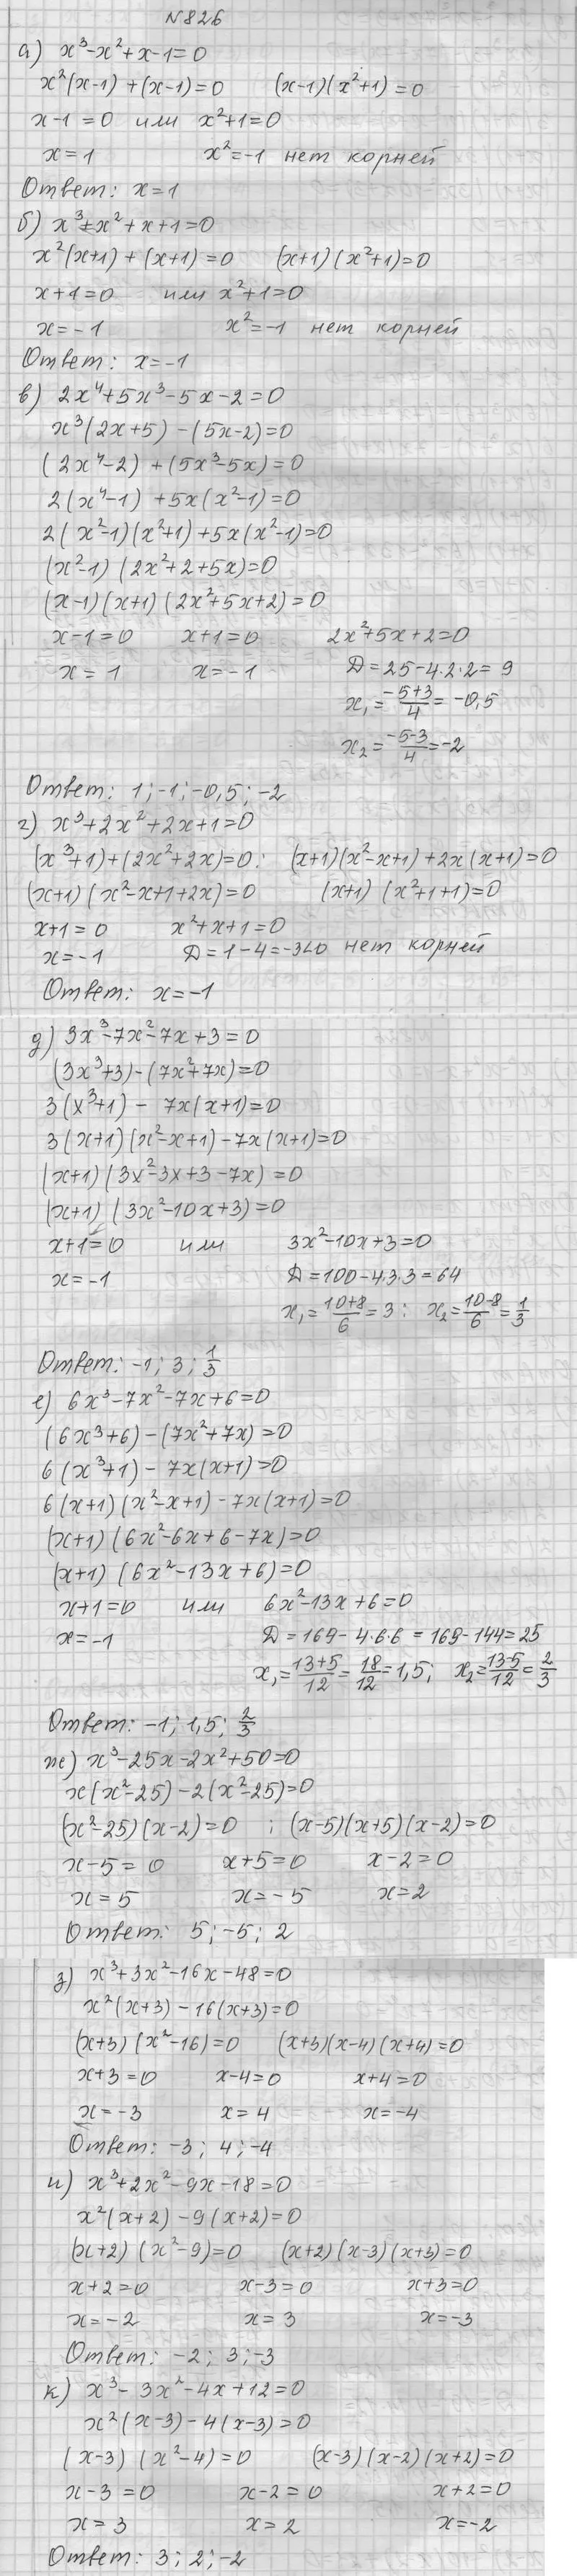 №826
а) x³-x²+x-1=0
x²(x-1)+(x-1)=0 (x-1)(x²+1)=0
x-1=0 или x²+1=0
x=1 x²=-1 нет корней
Ответ: x=1
б) x³+x²+x+1=0
x²(x+1)+(x+1)=0 (x+1)(x²+1)=0
x+1=0 или x²+1=0
x=-1 x²=-1 нет корней
Ответ: x=-1
в) 2x⁴+5x³-5x-2=0
x³(2x+5)-(5x-2)=0
(2x⁴-2)+(5x³-5x)=0
2(x⁴-1)+5x(x²-1)=0
2(x²-1)(x²+1)+5x(x²-1)=0
(x²-1)(2x²+2+5x)=0
(x-1)(x+1)(2x²+5x+2)=0
x-1=0 x+1=0 2x²+5x+2=0
x=1 x=-1 Д=25-4·2·2=9
x₁=(-5+3)/4=-0,5
x₂=(-5-3)/4=-2
Ответ: 1; -1; -0,5; -2
г) x³+2x²+2x+1=0
(x³+1)+(2x²+2x)=0; (x+1)(x²-x+1)+2x(x+1)=0
(x+1)(x²-x+1+2x)=0 (x+1)(x²+1+1)=0
x+1=0 x²+x+1=0
x=-1 Д=1-4=-3<0 нет корней
Ответ: x=-1
д) 3x³-7x²-7x+3=0
(3x³+3)-(7x²+7x)=0
3(x³+1)-7x(x+1)=0
3(x+1)(x²-x+1)-7x(x+1)=0
(x+1)(3x²-3x+3-7x)=0
(x+1)(3x²-10x+3)=0
x+1=0 или 3x²-10x+3=0
x=-1 Д=100-4·3·3=64
x₁=(10+8)/6=3; x₂=(10-8)/6=1/3
Ответ: -1; 3; 1/3
е) 6x³-7x²-7x+6=0
(6x³+6)-(7x²+7x)=0
6(x³+1)-7x(x+1)=0
6(x+1)(x²-x+1)-7x(x+1)=0
(x+1)(6x²-6x+6-7x)=0
(x+1)(6x²-13x+6)=0
x+1=0 или 6x²-13x+6=0
x=-1 Д=169-4·6·6=169-144=25
x₁=(13+5)/12=18/12=1,5; x₂=(13-5)/12=2/3
Ответ: -1; 1,5; 2/3
ж) x³-25x-2x²+50=0
x(x²-25)-2(x²-25)=0
(x²-25)(x-2)=0 ; (x-5)(x+5)(x-2)=0
x-5=0 x+5=0 x-2=0
x=5 x=-5 x=2
Ответ: 5; -5; 2
з) x³+3x²-16x-48=0
x²(x+3)-16(x+3)=0
(x+3)(x²-16)=0 (x+3)(x-4)(x+4)=0
x+3=0 x-4=0 x+4=0
x=-3 x=4 x=-4
Ответ: -3; 4; -4
и) x³+2x²-9x-18=0
x²(x+2)-9(x+2)=0
(x+2)(x²-9)=0 (x+2)(x-3)(x+3)=0
x+2=0 x-3=0 x+3=0
x=-2 x=3 x=-3
Ответ: -2; 3; -3
к) x³-3x²-4x+12=0
x²(x-3)-4(x-3)=0
(x-3)(x²-4)=0 (x-3)(x-2)(x+2)=0
x-3=0 x-2=0 x+2=0
x=3 x=2 x=-2
Ответ: 3; 2; -2